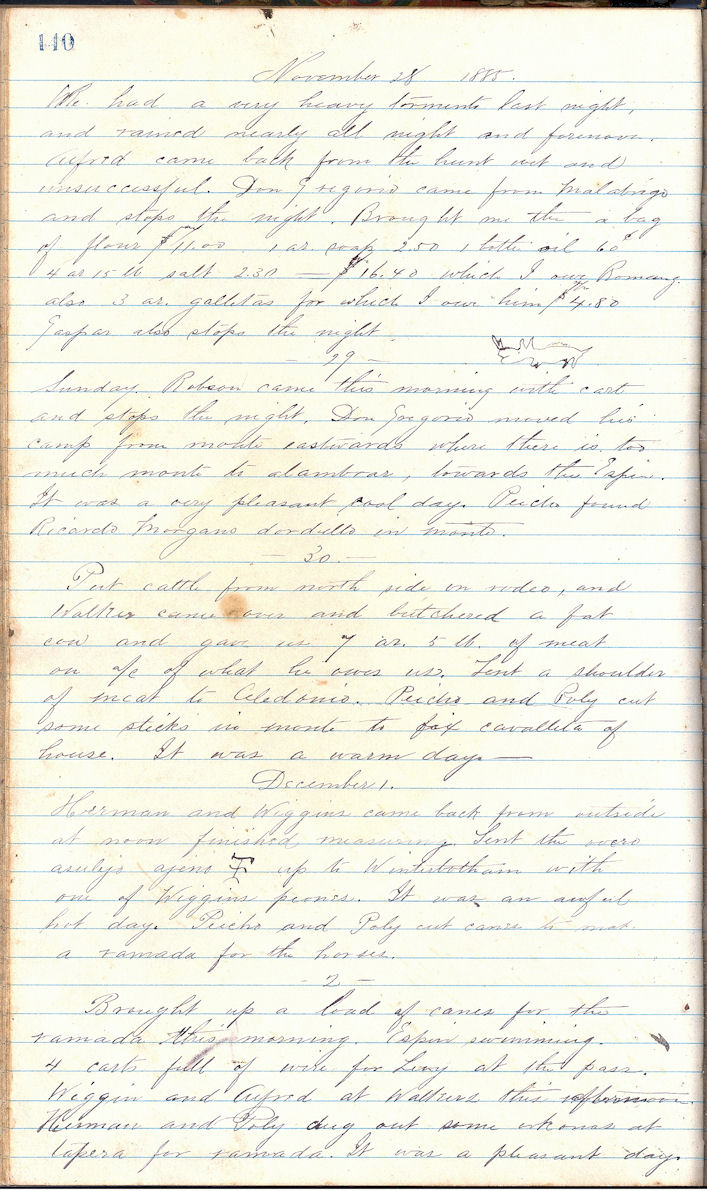 110
November 28 1885.
We had a very heavy tormenta last night,
and rained nearly all night and forenoon.
Alfred came back from the hunt wet and
unsuccessful. Don Gregorio came from Malabrigo
and stops the night. Brought me the a bag
of flour $11.00 1 ar. soap 2.50 1 bottle oil 60
4 ar 15 lb salt 2.30 — $16.40 which I owe Romang.
also 3 ar. galletas for which I owe him $4.80
Gaspar also stops the night
— 29 —
Sunday. Robson came this morning with cart
and stops the night. Don Gregorio moved his
camp from monte eastwards where there is too
much monte to alambrar, towards the Espin.
It was a very pleasant cool day. Peicho found
Ricardo Morgans dordillo in monte.
— 30. —
Put cattle from north side on rodeo, and
Walker came over and butchered a fat
cow and gave us 7 ar. 5 lb. of meat
on a/c of what he owes us. Sent a shoulder
of meat to Celedonio. Peicho and Poly cut
some sticks in monte to fix cavalleta of
house. It was a warm day —
December 1.
Herman and Wiggins came back from outside
at noon finished measuring. Sent the
asulejo ajeno up to Winterbotham with
one of Wiggins peones. It was an awful
hot day. Peicho and Poly cut canes to
a ramada for the horses.
— 2 —
Brought up a load of canes for the
ramada this morning. Espin swimming.
4 carts full of wire for Levy at the pass.
Wiggin and Alfred at Walkers this afternoon.
Herman and Poly dug out some at
tapera for ramada. It was a pleasant day.